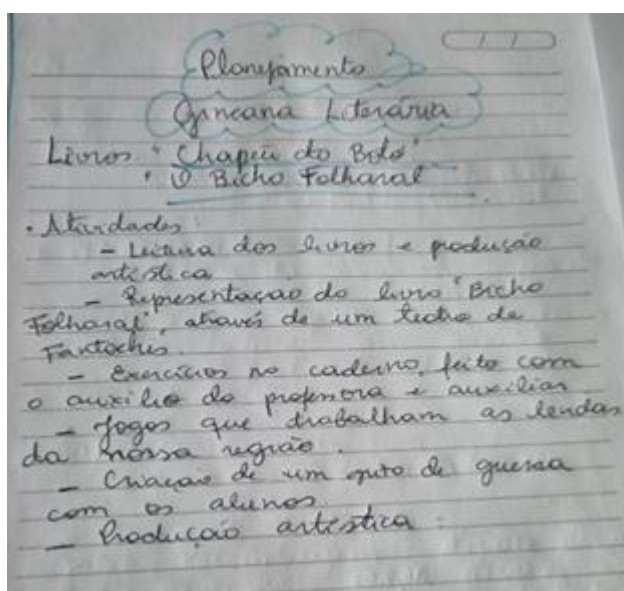 Planejamento
Gincana Literária
Livros " Chapéu do Boto"
" O Bicho Folharal"
• Atividades
- Leitura dos livros e produção
artística
- Representação do livro "Bicho
Folharal", através de um teatro de
Fantoches.
- Exercícios no caderno, feito com
o auxílio da professora e auxiliar
- Jogos que trabalham as lendas
da nossa região.
- Criação de um grito de guerra
com os alunos.
- Produção artística.